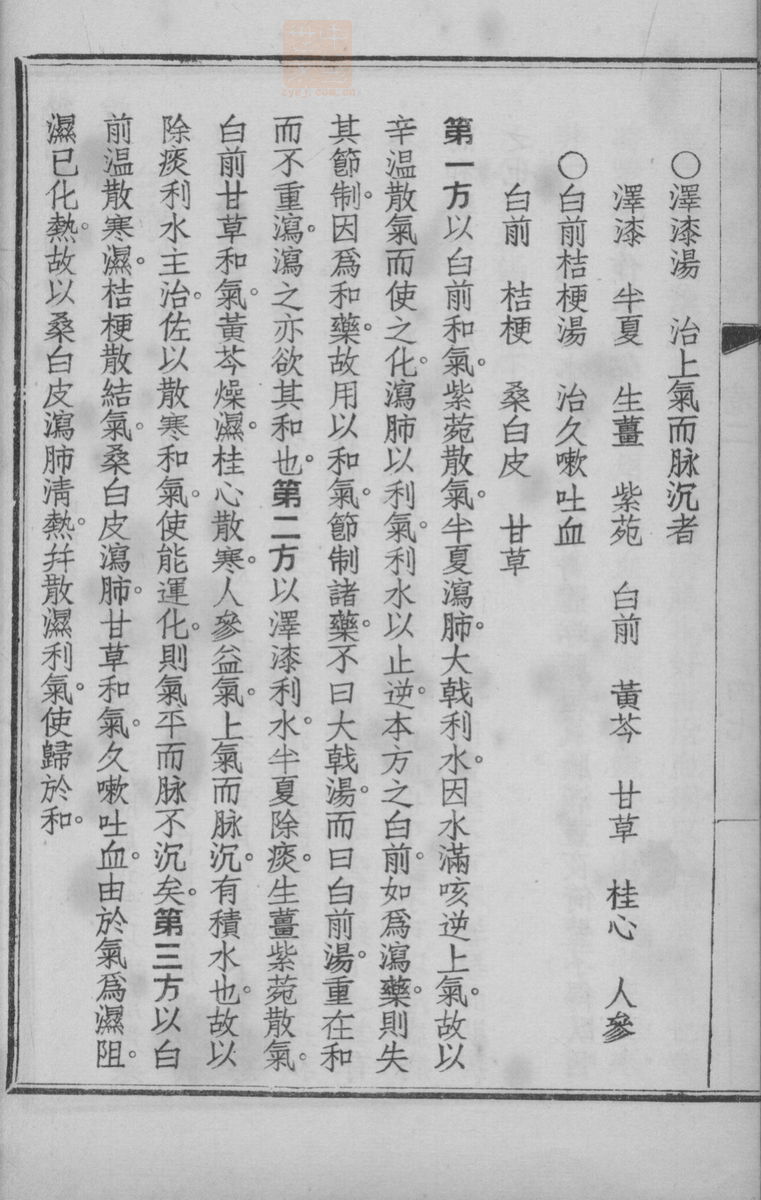 ○澤漆湯　治上氣而脉沉者
澤漆　半夏　生薑　紫菀　白前　黃芩　甘草　桂心　人參
○白前桔梗湯　治久嗽吐血
白前　桔梗　桑白皮　甘草
第一方以白前和氣。紫菀散氣。半夏瀉肺。大戟利水。因水滿咳逆上氣。故以
辛温散氣而使之化。瀉肺以利氣。利水以止逆。本方之白前。如爲瀉藥。則失
其節制。因爲和藥。故用以和氣。節制諸藥。不曰大戟湯。而曰白前湯。重在和
而不重瀉。瀉之亦欲其和也。第二方以澤漆利水。半夏除痰。生薑紫菀散氣。
白前甘草和氣。黃芩燥濕。桂心散寒。人參益氣。上氣而脉沉。有積水也。故以
除痰利水主治。佐以散寒和氣。使能運化。則氣平而脉不沉矣。第三方以白
前温散寒濕。桔梗散結氣。桑白皮瀉肺。甘草和氣。久嗽吐血。由於氣爲濕阻。
濕已化熱。故以桑白皮瀉肺清熱。幷散濕利氣。使歸於和。